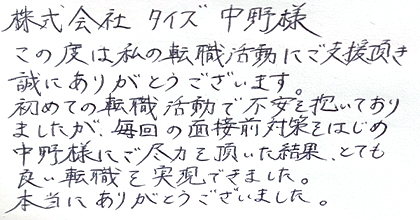 株式会社 タイズ 中野様
この度は私の転職活動にご支援頂き
誠にありがとうございます。
初めての転職活動で不安を抱いており
ましたが、毎回の面接前対策をはじめ
中野様にご尽力を頂いた結果、とても
良い転職を実現できました。
本当にありがとうございました。